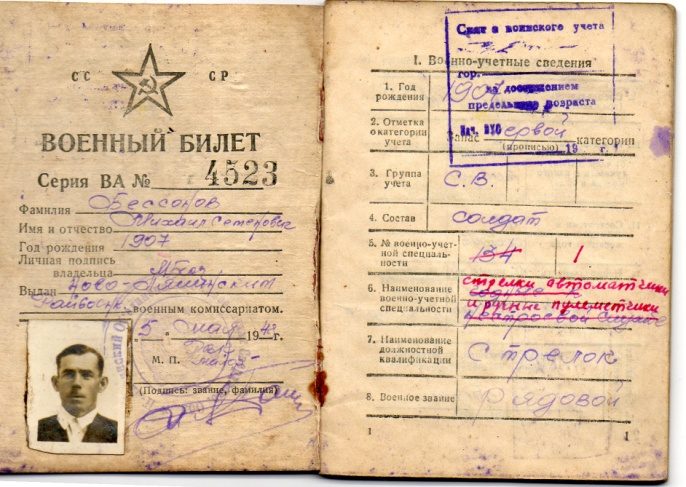 СС СР
ВОЕННЫЙ БИЛЕТ
Серия ВА № 4523
Фамилия Бессонов
Имя и отчество Михаил Семенович
Год рождения 1907
Личная подпись
владельца
Выдан Ново-Лялинским
Райвоен. военным комиссариатом.
5 мая 194 г.
М. П.
(Подпись: звание, фамилия)
Снят с воинского учета
гор.
по достижением
предельного возраста
Нач. ВУС
19 г.
I. Военно-учетные сведения
1. Год рождения 1907
2. Отметка о категории учета Запас первой категории
(прописью)
3. Группа учета С. В.
4. Состав солдат
5. № военно-учетной специальности 134 1
6. Наименование военно-учетной специальности стрелки автоматчики
и ручные пулеметчики
7. Наименование должностной квалификации Стрелок
8. Военное звание Рядовой
1 1